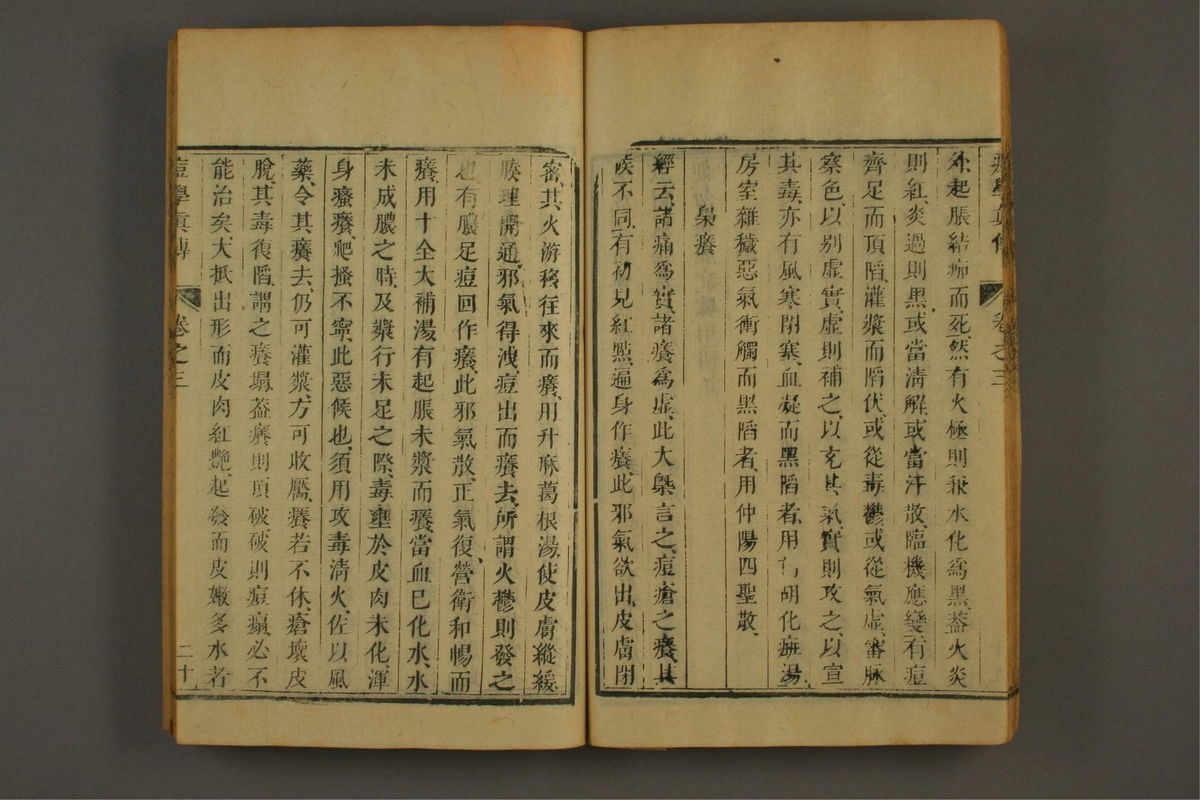 痘學真傳 卷之三
外起脹結痂而死然有火極則兼水化爲黑葢火炎
則紅炎過則黑或當淸解或當汗散臨機應變有痘
齊足而頂陷灌漿而陷伏或從毒鬱或從氣虛審脉
察色以别虛實虛則補之以充其氣實則攻之以宣
其毒亦有風寒閉塞血凝而黑陷者用 胡化斑湯
房室雜穢惡氣衝觸而黑陷者用仲陽四聖散
梟癢
經云諸痛爲實諸癢爲虛此大槩言之痘瘡之癢其
候不同有初見紅㸃遍身作癢此邪氣欲出皮膚閉
密其火游移往來而癢用升麻葛根湯使皮膚縱緩
腠理開通邪氣得洩痘出而癢去所謂火鬱則發之
也有膿足痘回作癢此邪氣散正氣復營衛和暢而
癢用十全大補湯有起脹未漿而癢當血巳化水水
未成膿之時及漿行未足之際毒壅於皮肉未化渾
身癢癢爬搔不寧此惡候也須用攻毒淸火佐以風
藥令其癢去仍可灌漿方可收靨癢若不休瘡壞皮
脫其毒復陷謂之癢塌葢癢則頂破破則痘塌必不
能治矣大抵出形而皮肉紅艷起發而皮嫩多水者
痘學真傳 卷之三 二十